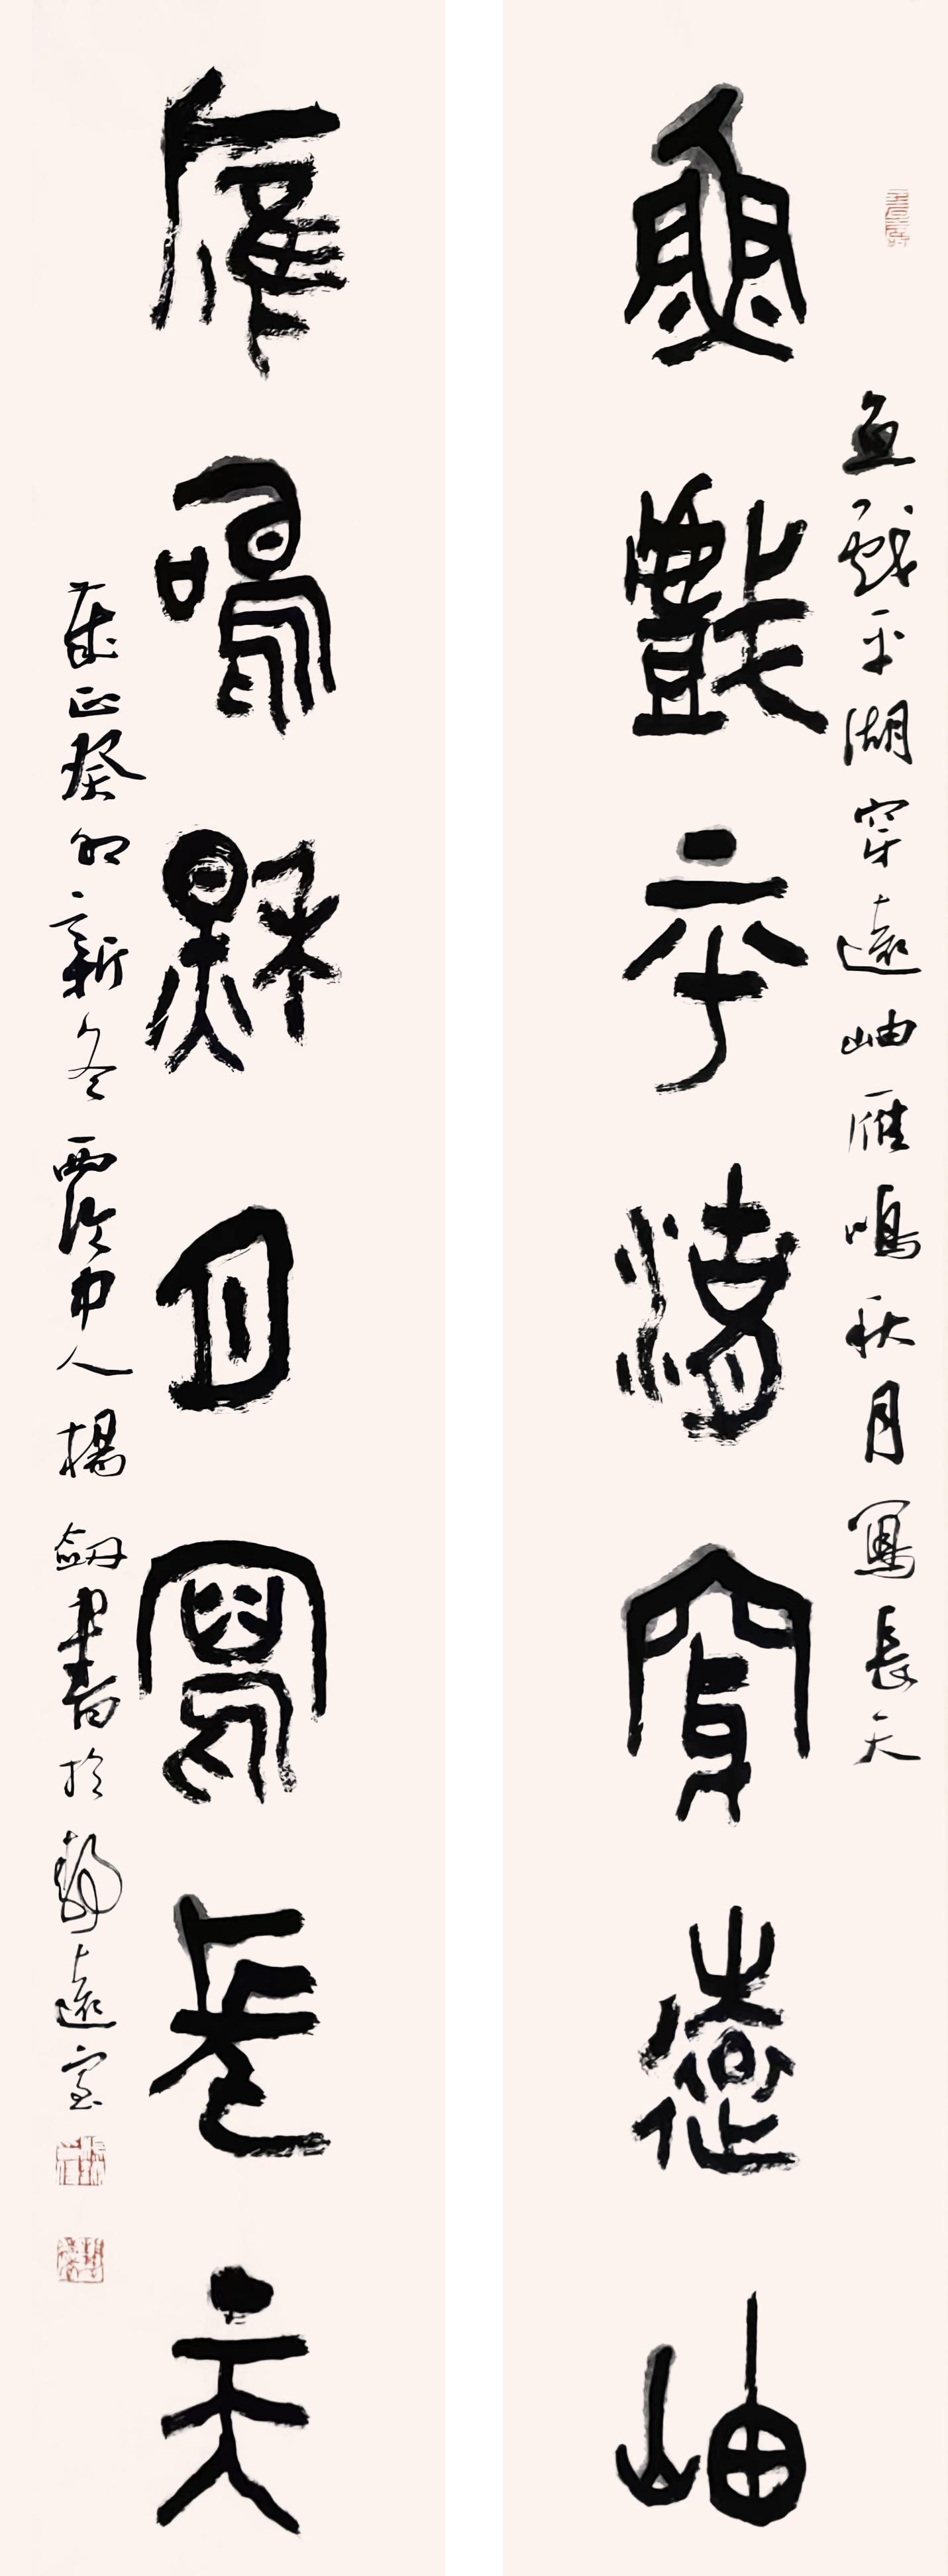 魚戲平湖穿遠岫雁鳴秋月寫長天
魚戲平湖穿遠岫
雁鳴秋月寫長天
歲正癸卯新冬西泠中人楊劍書於靜遠室